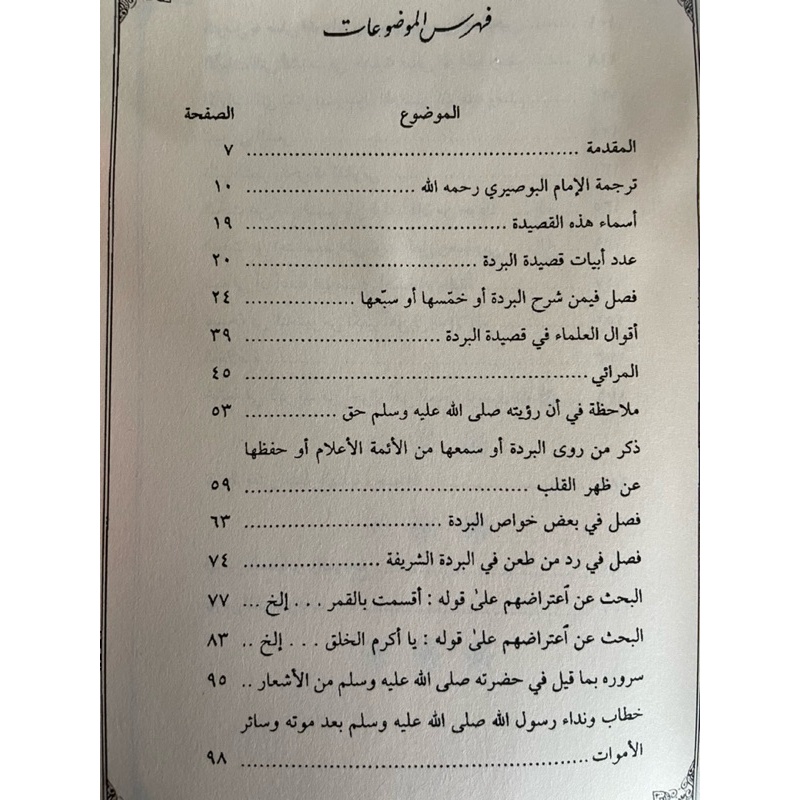 فهرس الموضوعات
الموضوع الصفحة
المقدمة ................................................ ٧
ترجمة الإمام البوصيري رحمه الله ............................ ١٠
أسماء هذه القصيدة ........................................ ١٩
عدد أبيات قصيدة البردة .................................... ٢٠
فصل فيمن شرح البردة أو خمّسها أو سبّعها .................. ٢٤
أقوال العلماء في قصيدة البردة ............................ ٣٩
المرائي .................................................. ٤٥
ملاحظة في أن رؤيته صلى الله عليه وسلم حق ............... ٥٣
ذكر من روى البردة أو سمعها من الأئمة الأعلام أو حفظها
عن ظهر القلب ............................................ ٥٩
فصل في بعض خواص البردة ................................ ٦٣
فصل في رد من طعن في البردة الشريفة ...................... ٧٤
البحث عن ٱعتراضهم علىٰ قوله : أقسمت بالقمر . . . إلخ ... ٧٧
البحث عن ٱعتراضهم علىٰ قوله : يا أكرم الخلق . . . إلخ .. ٨٣
سروره بما قيل في حضرته صلى الله عليه وسلم من الأشعار .. ٩٥
خطاب ونداء رسول الله صلى الله عليه وسلم بعد موته وسائر
الأموات .................................................. ٩٨